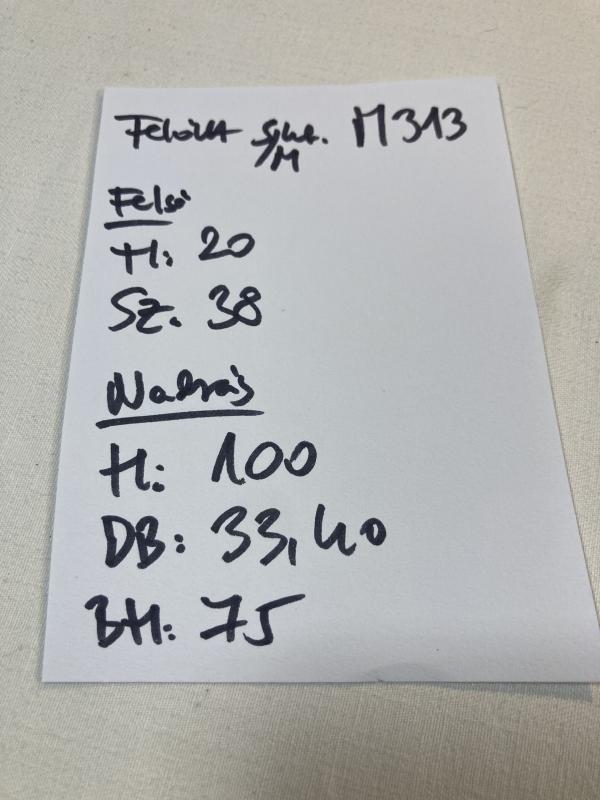 Felnőtt M313
/M
Felső
H: 20
Sz. 38
Nadrág
H: 100
DB: 33,40
BH: 75